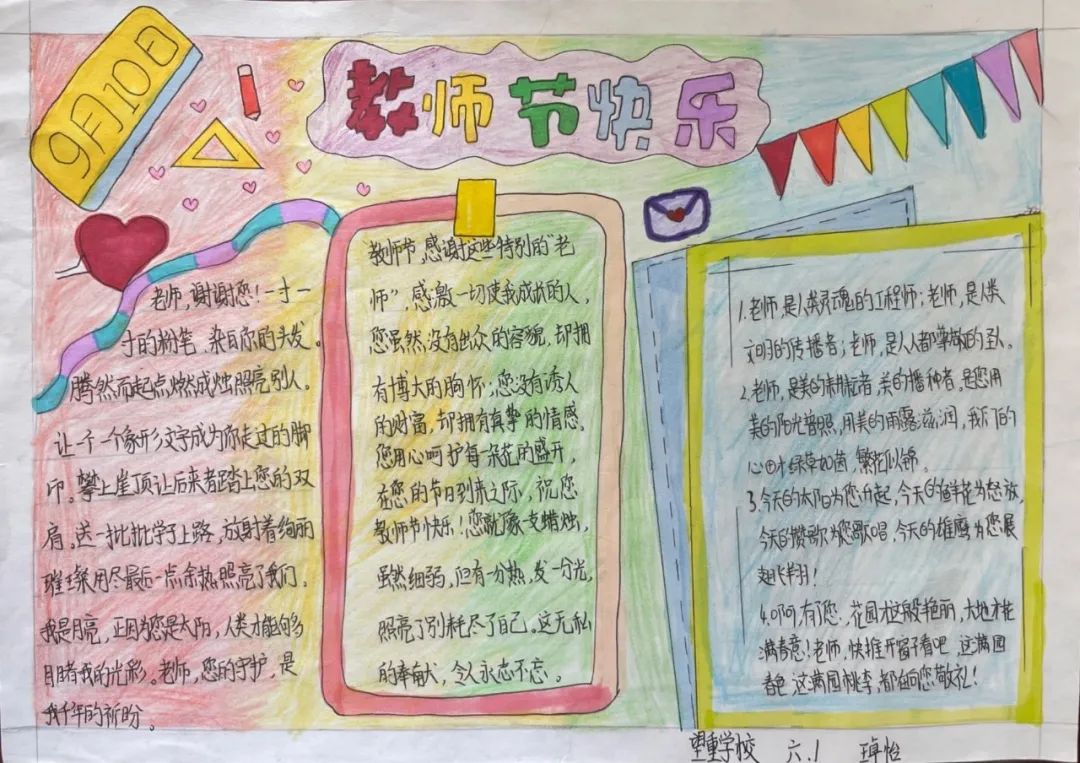 9月10日
教师节快乐
老师,谢谢您!一寸一
寸的粉笔、染白你的头发。
腾然而起点燃成烛照亮别人。
让一个一个象形文字成为你走过的脚
印。攀上崖顶让后来者踏上您的双
肩。送一批批学子上路,放射着绚丽
璀璨用尽最后一点余热照亮了我们。
我是月亮,正因为您是太阳,人类才能够多
目睹我的光彩。老师,您的守护,是
我千年的祈盼。
教师节,感谢这些特别的“老
师”,感激一切使我成长的人,
您虽然没有出众的容貌,却拥
有博大的胸怀;您没有诱人
的财富,却拥有真挚的情感,
您用心呵护每一朵花的盛开,
在您的节日到来之际,祝您
教师节快乐!您就像一支蜡烛,
虽然细弱,但有一分热,发一分光,
照亮了别耗尽了自己。这无私
的奉献,令人永志不忘。
1.老师,是人类灵魂的工程师;老师,是人类
文明的传播者;老师,是人人都尊敬的圣人。
2.老师,是美的耕耘者,美的播种者,是您用
美的阳光普照,用美的雨露滋润,我们的
心田才绿草如茵,繁花似锦。
3.今天的太阳为您升起,今天的鲜花为您怒放,
今天的赞歌为您歌唱,今天的雄鹰为您展
翅飞翔!
4.啊,有了您,花园才这般艳丽,大地才花
满春意!老师,快推开窗子看吧,这满园
春色,这满园桃李,都在向您敬礼!
望重学校 六.1 王卓怡